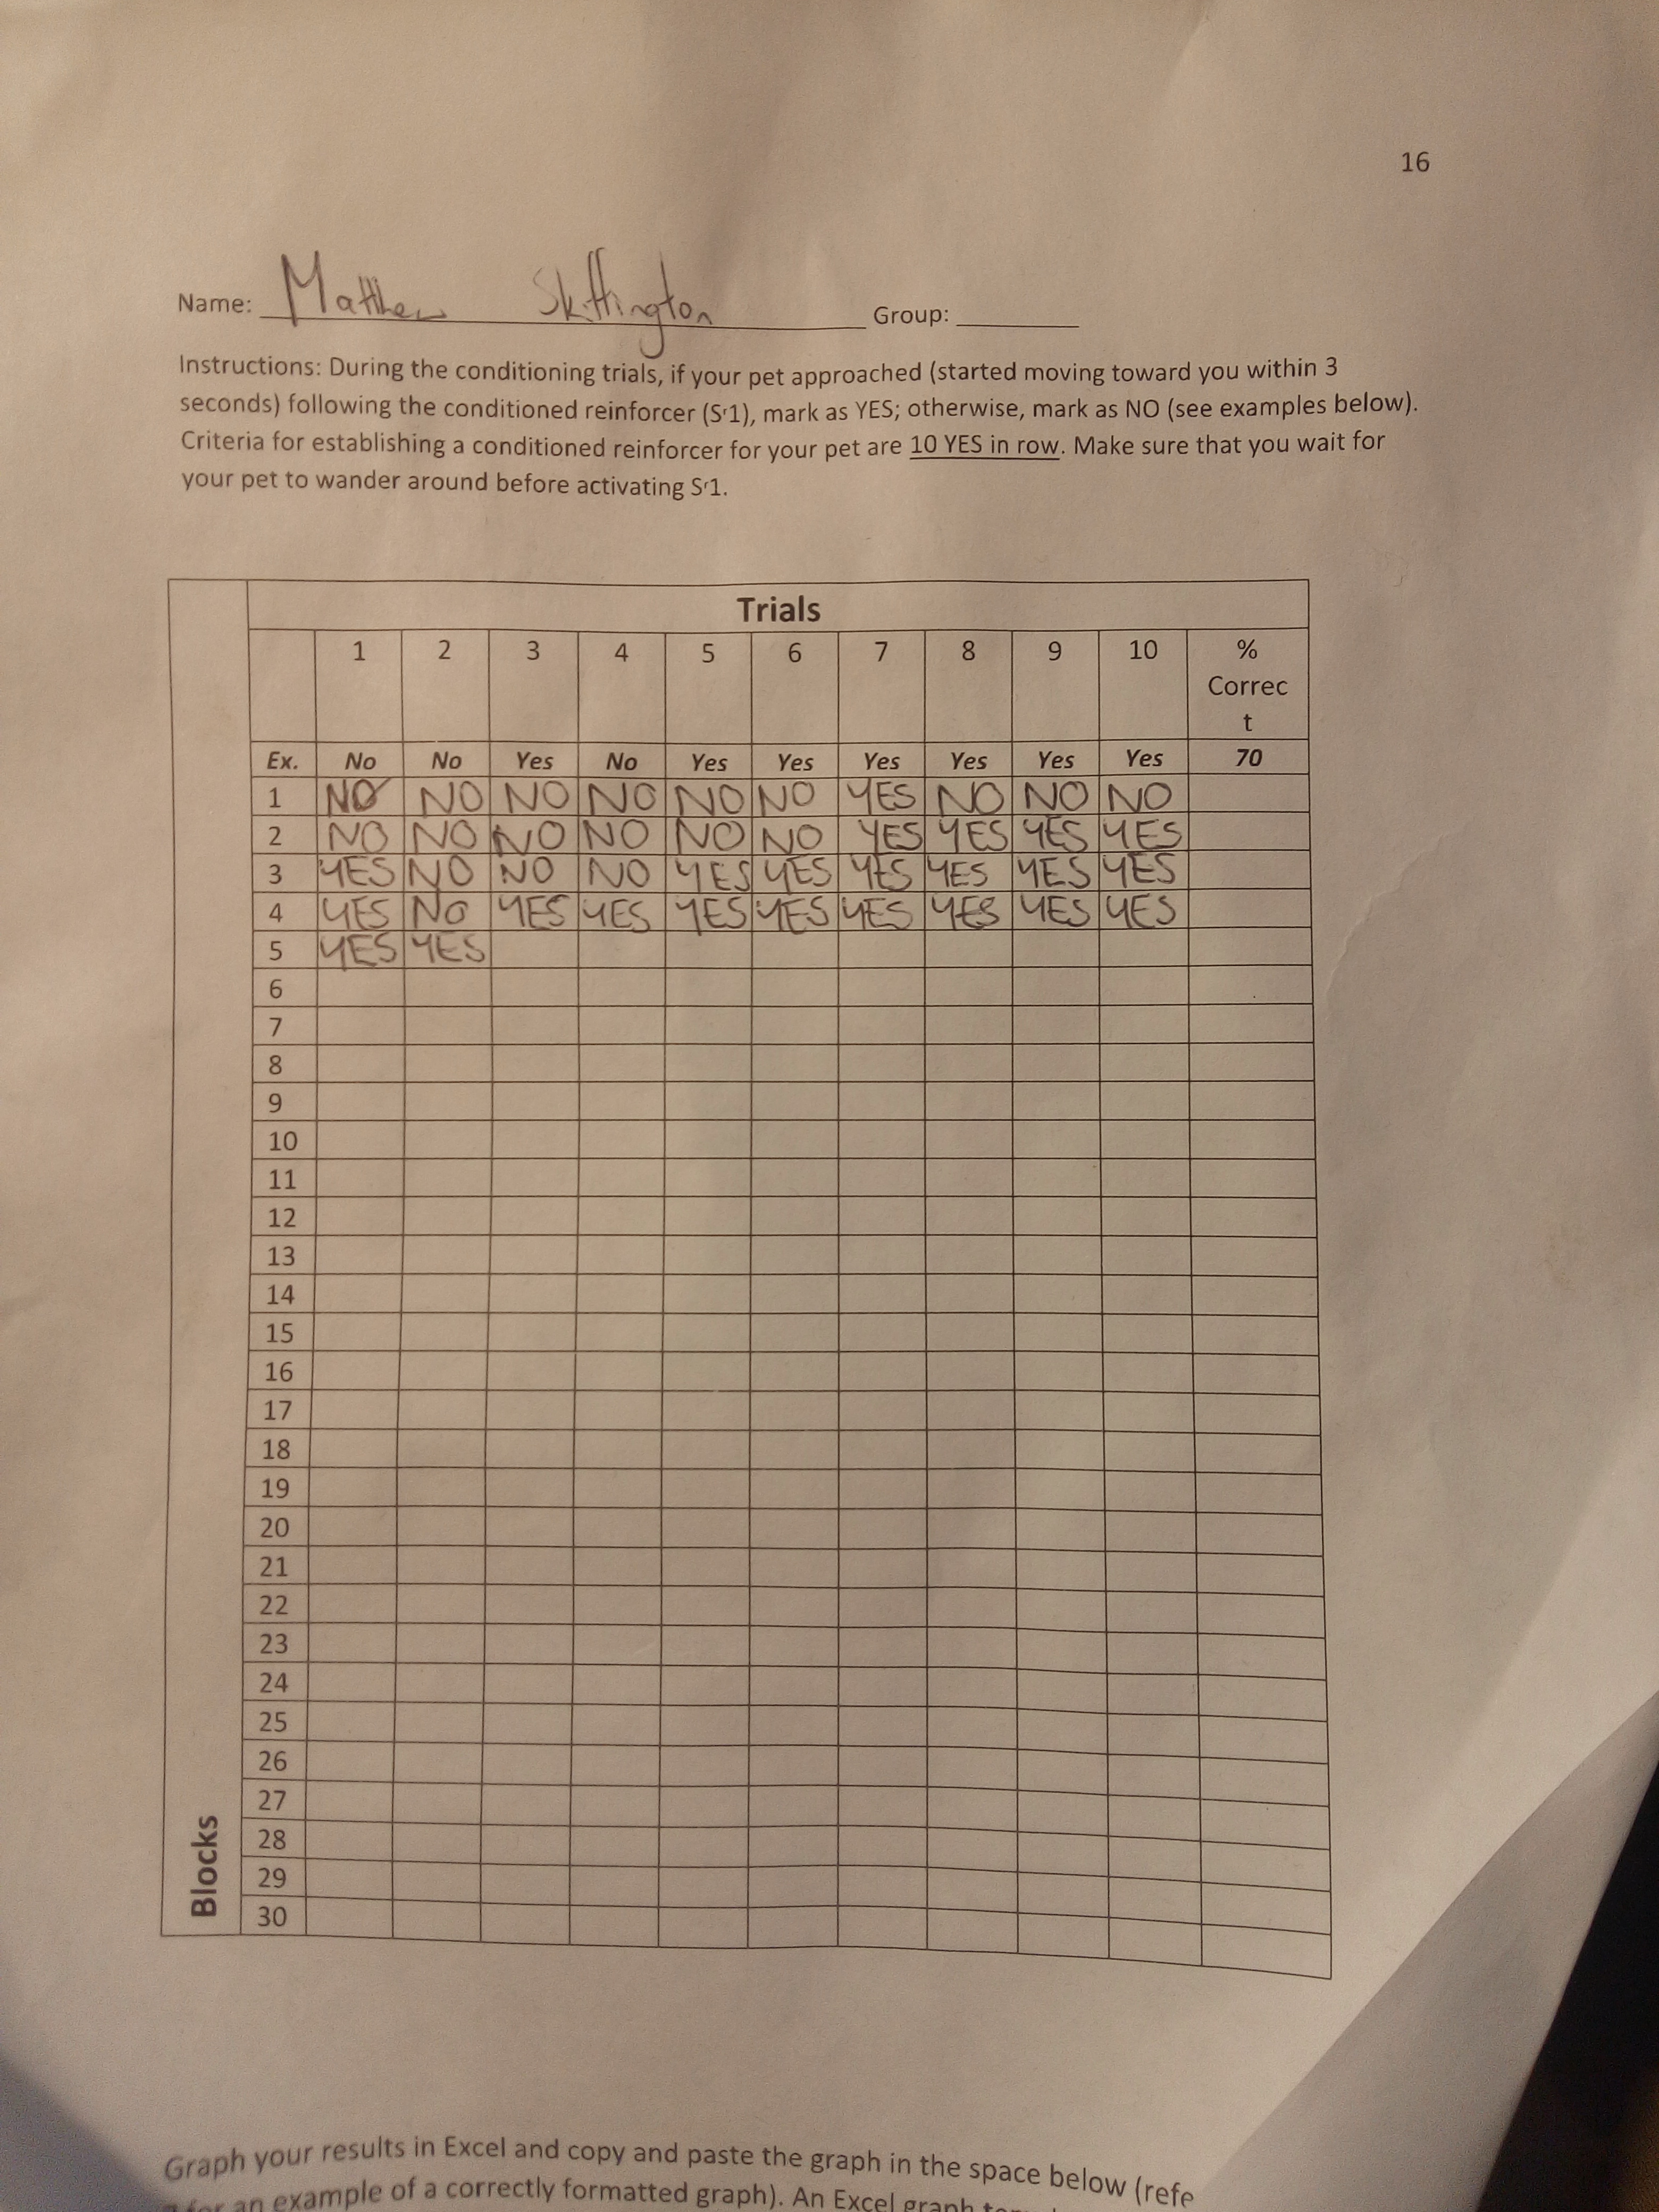 16
Name: Matthew Skiffington Group:
Instructions: During the conditioning trials, if your pet approached (started moving toward you within 3
seconds) following the conditioned reinforcer (Sʳ1), mark as YES; otherwise, mark as NO (see examples below).
Criteria for establishing a conditioned reinforcer for your pet are 10 YES in row. Make sure that you wait for
your pet to wander around before activating Sʳ1.
Trials
1 2 3 4 5 6 7 8 9 10 %
Correc
t
Ex. No No Yes No Yes Yes Yes Yes Yes Yes 70
1 NO NO NO NO NO NO YES NO NO NO
2 NO NO NO NO NO NO YES YES YES YES
3 YES NO NO NO YES YES YES YES YES YES
4 YES NO YES YES YES YES YES YES YES YES
5 YES YES
6
7
8
9
10
11
12
13
14
15
16
17
18
19
20
21
22
23
24
25
26
27
28
29
30
Blocks
Graph your results in Excel and copy and paste the graph in the space below (refe
for an example of a correctly formatted graph). An Excel graph